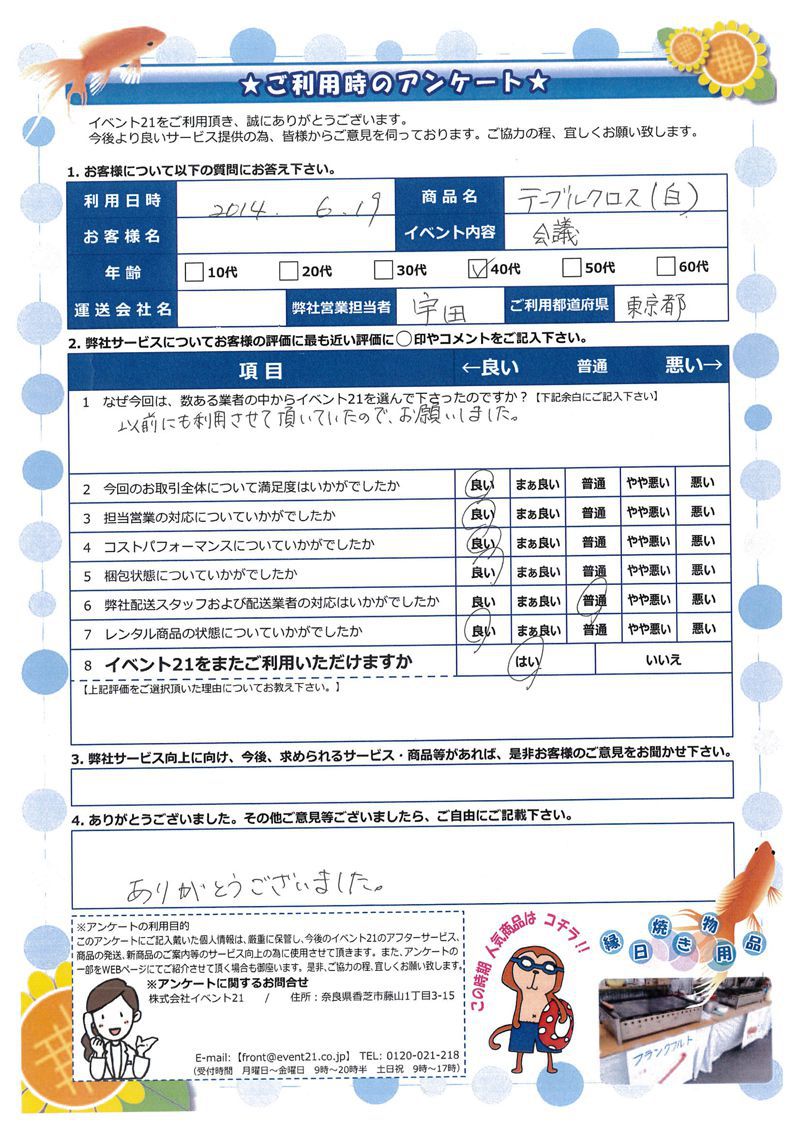 ★ご利用時のアンケート★
イベント21をご利用頂き、誠にありがとうございます。
今後より良いサービス提供の為、皆様からご意見を伺っております。ご協力の程、宜しくお願い致します。
1. お客様について以下の質問にお答え下さい。
利用日時 2014. 6.19 商品名 テーブルクロス(白)
お客様名 イベント内容 会議
年齢 10代 20代 30代 40代 50代 60代
運送会社名 弊社営業担当者 宇田 ご利用都道府県 東京都
2. 弊社サービスについてお客様の評価に最も近い評価に○印やコメントをご記入下さい。
項目 ←良い 普通 悪い→
1 なぜ今回は、数ある業者の中からイベント21を選んで下さったのですか？【下記余白にご記入下さい】
以前にも利用させて頂いていたので、お願いしました。
2 今回のお取引全体について満足度はいかがでしたか 良い まぁ良い 普通 やや悪い 悪い
3 担当営業の対応についていかがでしたか 良い まぁ良い 普通 やや悪い 悪い
4 コストパフォーマンスについていかがでしたか 良い まぁ良い 普通 やや悪い 悪い
5 梱包状態についていかがでしたか 良い まぁ良い 普通 やや悪い 悪い
6 弊社配送スタッフおよび配送業者の対応はいかがでしたか 良い まぁ良い 普通 やや悪い 悪い
7 レンタル商品の状態についていかがでしたか 良い まぁ良い 普通 やや悪い 悪い
8 イベント21をまたご利用いただけますか はい いいえ
【上記評価をご選択頂いた理由についてお教え下さい。】
3. 弊社サービス向上に向け、今後、求められるサービス・商品等があれば、是非お客様のご意見をお聞かせ下さい。
4. ありがとうございました。その他ご意見等ございましたら、ご自由にご記載下さい。
ありがとうございました。
※アンケートの利用目的
このアンケートにご記入戴いた個人情報は、厳重に保管し、今後のイベント21のアフターサービス、
商品の発送、新商品のご案内等のサービス向上の為に使用させて頂きます。また、アンケートの
一部をWEBページにてご紹介させて頂く場合も御座います。是非、ご協力の程、宜しくお願い致します。
※アンケートに関するお問合せ
株式会社イベント21 / 住所：奈良県香芝市藤山1丁目3-15
E-mail:【front@event21.co.jp】 TEL: 0120-021-218
（受付時間 月曜日～金曜日 9時～20時半 土日祝 9時～17時）
この時期 人気商品は コチラ!!
縁日焼き物用品
フランクフルト